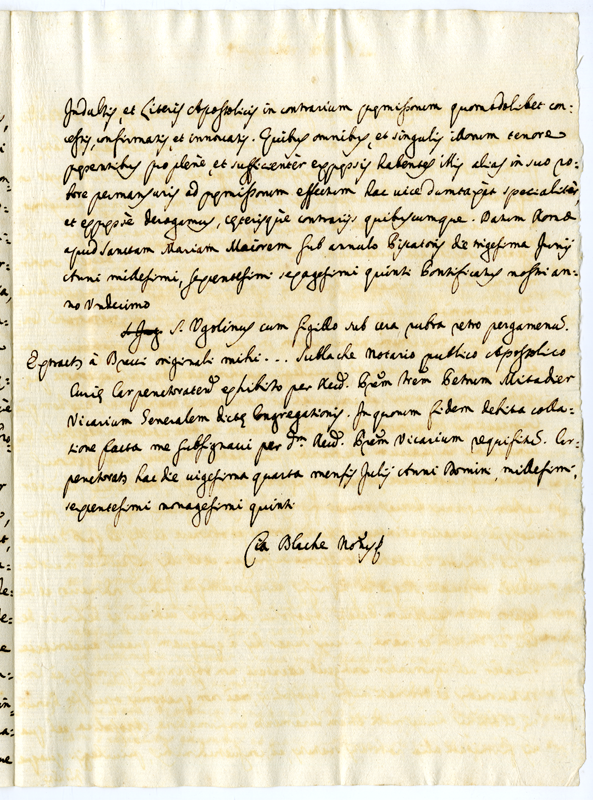 Indultis, et Literis Apostolicis in contrarium pṙmissorum quomodolibet con=
cessis, confirmatis, et innovatis. Quibus omnibus, et singulis illorum tenore
pṙsentibus pro plenè, et sufficientèr expṙssis habentes illis alias in suo ro=
bore permansuris ad pṙmissorum effectum hac vice dumtaxat specialitèr,
et expṙssè derogamus, cęterisque contrarijs quibuscumque. Datum Romæ
apud Sanctam Mariam Maiorem sub annulo Piscatoris die trigesima Junij
Anni millesimi, septentesimi sexagesimi quinti Pontificatus nostri an=
no Undecimo
S. Ugolinus cum sigillo sub cera rubra retro pergamenũ.
Extractũ à Brevi originali mihi ... Sublache Notario publico Apostolico
Curię Carpenctoraten̄ exhibito per Reud. Prẽm Frẽm Petrum Mitadier
Vicarium Generalem dictę Congregationis. In quorum fidem debita colla=
tione facta me subsignavi per d.m Reud. Prẽm Vicarium requisitũ. Car=
penctorati hac die uigesima quarta mensis Julij Anni Domini, millesimi,
septentesimi nonagesimi quinti
Blache Notus